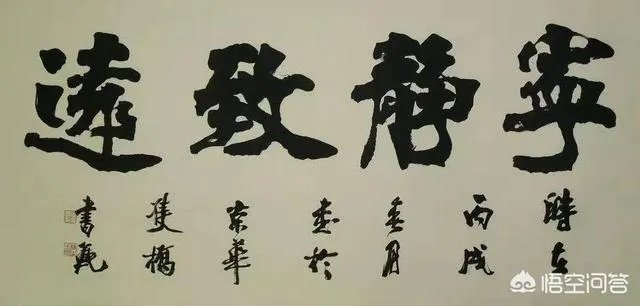 寧靜致遠
時在
丙戌
春月
於
京華
雙橋
書
悟空问答